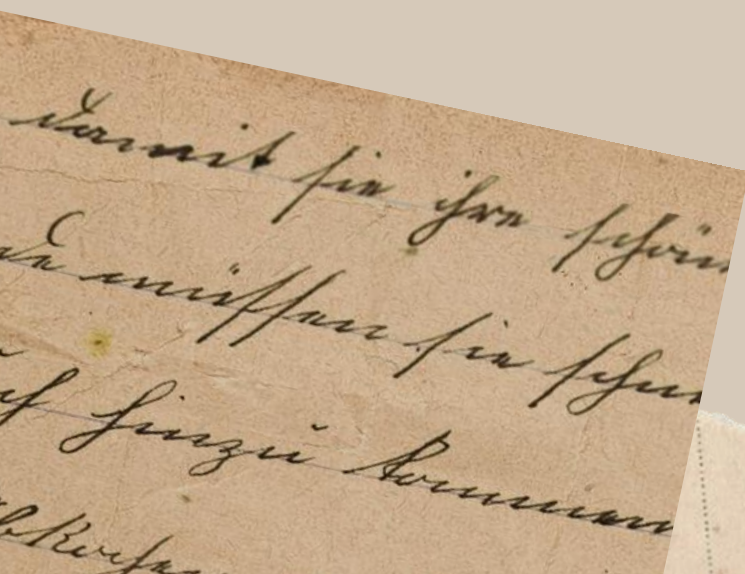 damit sie ihre schön
müssen sie schon
hinzu kommen